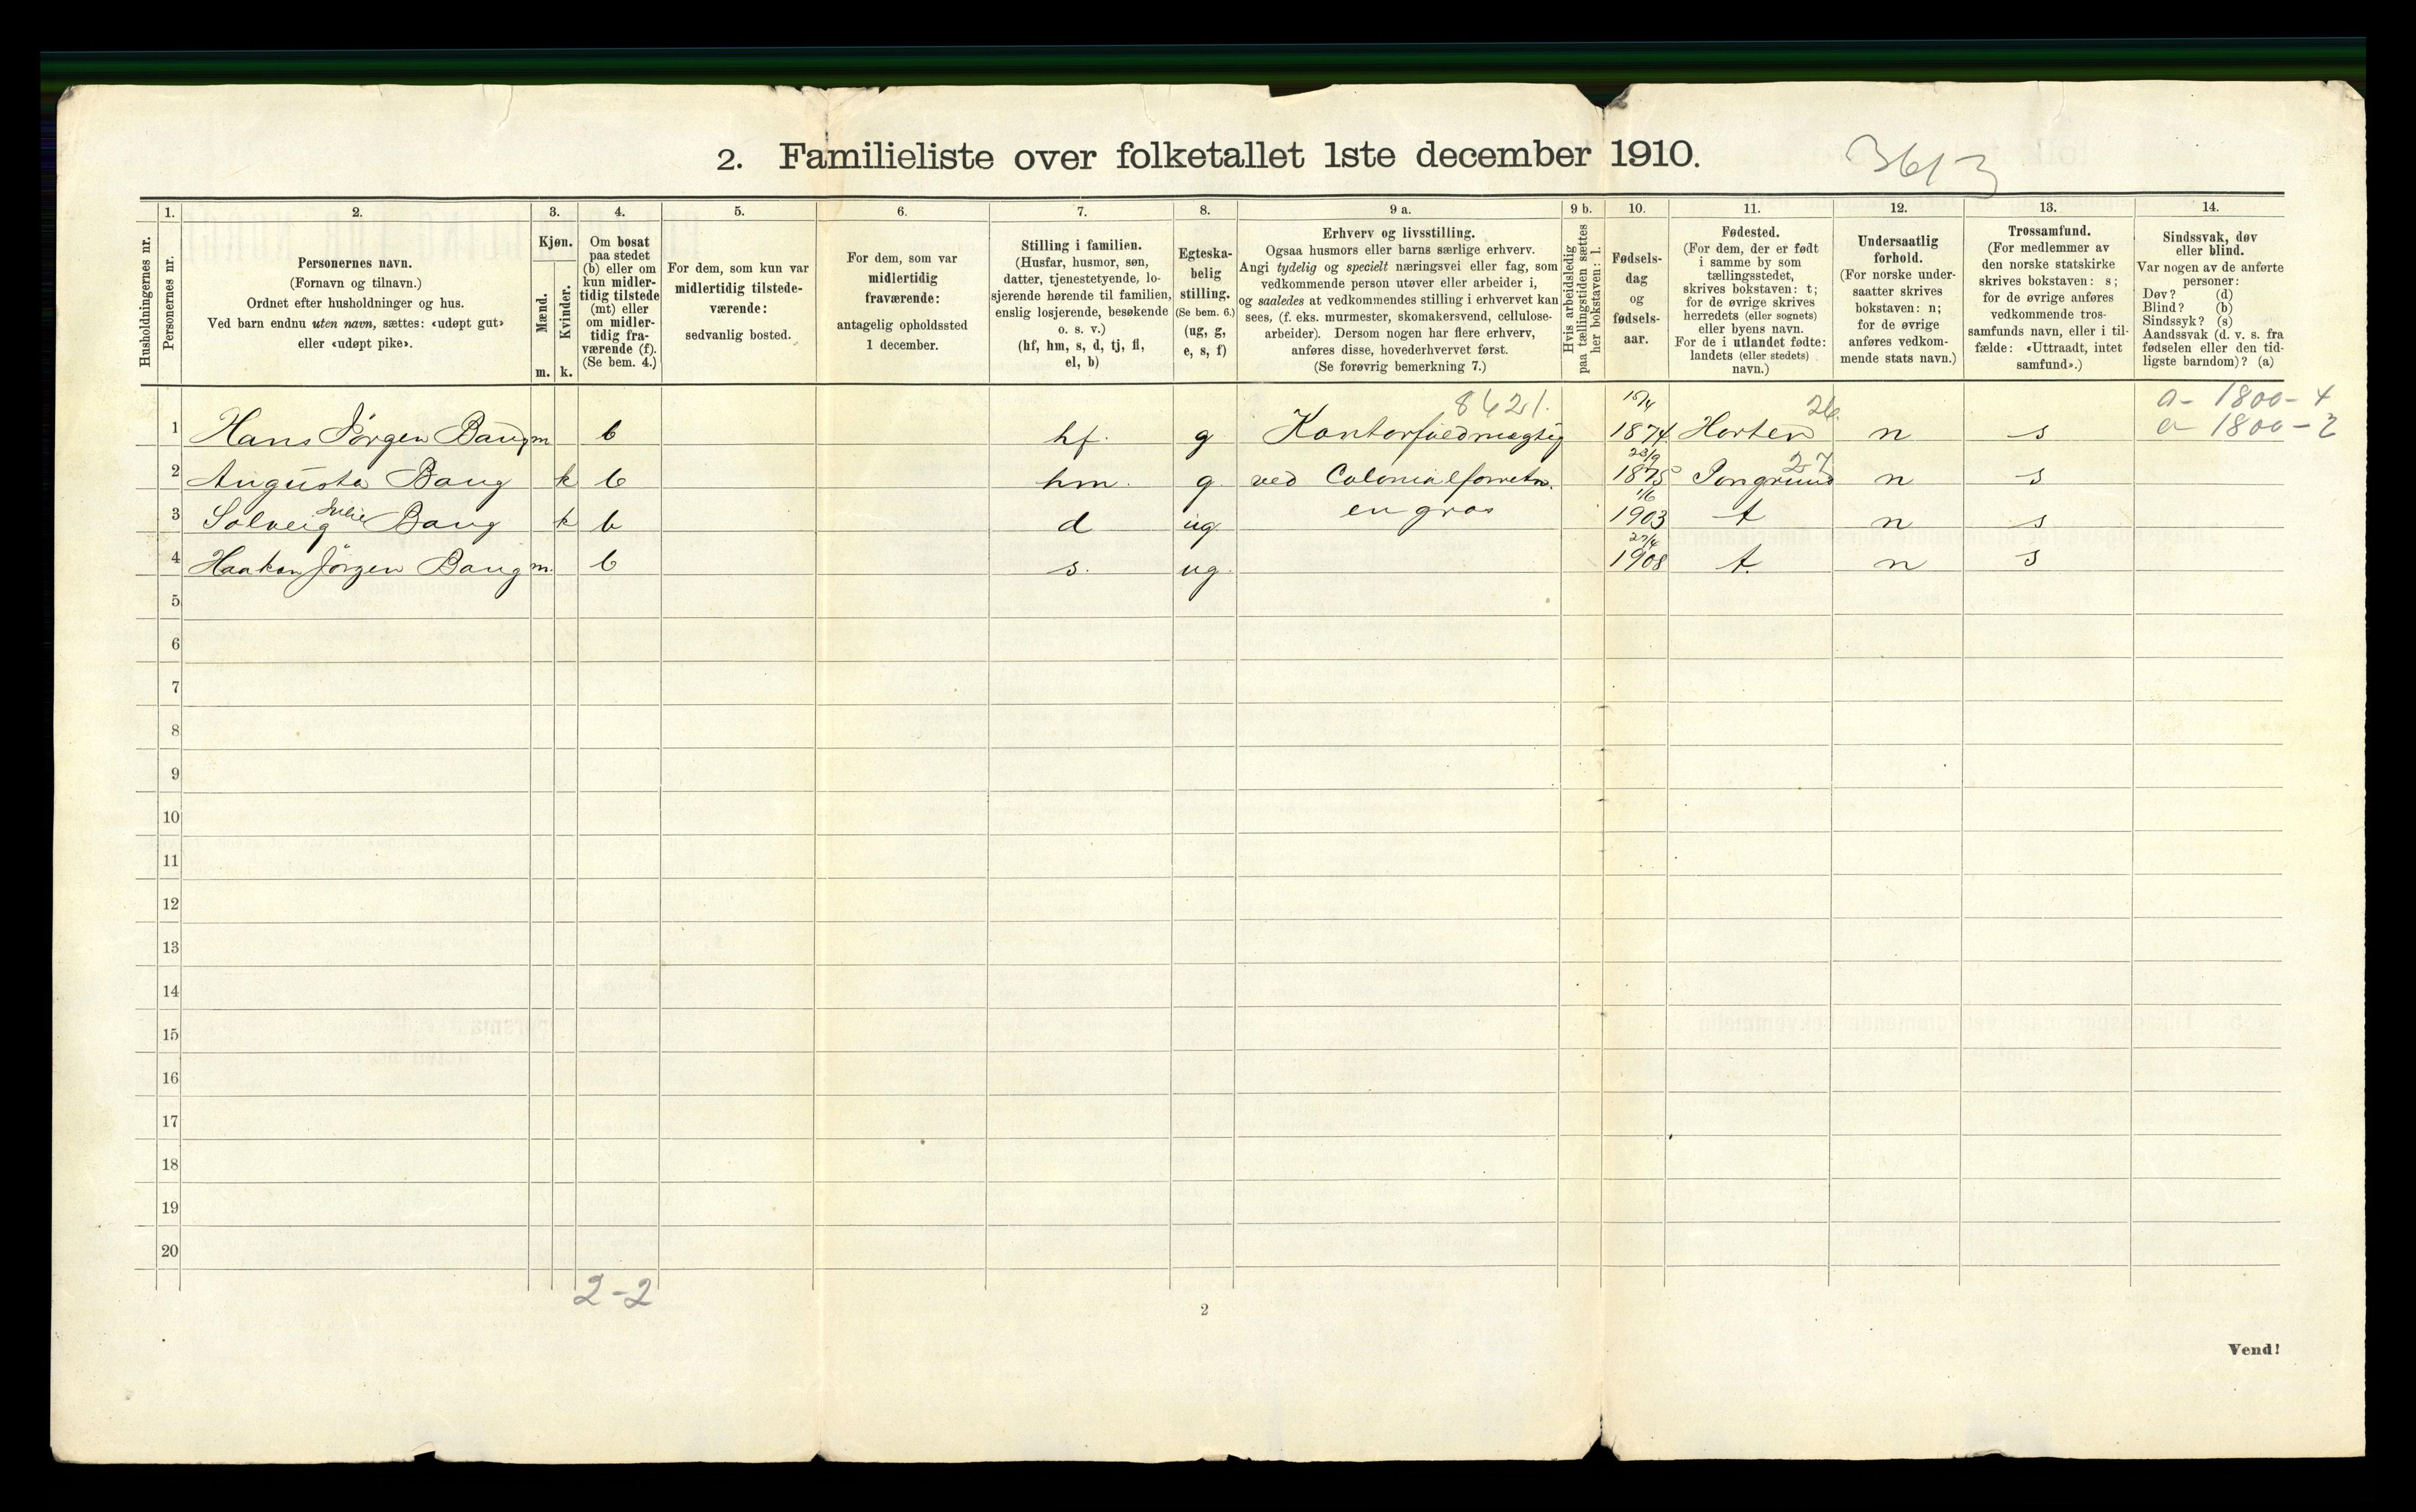 2. Familieliste over folketallet 1ste december 1910.
3613
Husholdningernes nr.
1.
Personernes nr.
2.
Personernes navn.
(Fornavn og tilnavn.)
Ordnet efter husholdninger og hus.
Ved barn endnu uten navn, sættes: «udøpt gut»
eller «udøpt pike».
3.
Kjøn.
Mænd.
Kvinder.
m. k.
4.
Om bosat
paa stedet
(b) eller om
kun midler-
tidig tilstede
(mt) eller
om midler-
tidig fra-
værende (f).
(Se bem. 4.)
5.
For dem, som kun var
midlertidig tilstede-
værende:
sedvanlig bosted.
6.
For dem, som var
midlertidig
fraværende:
antagelig opholdssted
1 december.
7.
Stilling i familien.
(Husfar, husmor, søn,
datter, tjenestetyende, lo-
sjerende hørende til familien,
enslig losjerende, besøkende
o. s. v.)
(hf, hm, s, d, tj, fl,
el, b)
8.
Egteska-
belig
stilling.
(Se bem. 6.)
(ug, g,
e, s, f)
9 a.
Erhverv og livsstilling.
Ogsaa husmors eller barns særlige erhverv.
Angi tydelig og specielt næringsvei eller fag, som
vedkommende person utøver eller arbeider i,
og saaledes at vedkommendes stilling i erhvervet kan
sees, (f. eks. murmester, skomakersvend, cellulose-
arbeider). Dersom nogen har flere erhverv,
anføres disse, hovederhvervet først.
(Se forøvrig bemerkning 7.)
9 b.
Hvis arbeidsledig
paa tællingstiden sættes
her bokstaven: l.
10.
Fødsels-
dag
og
fødsels-
aar.
11.
Fødested.
(For dem, der er født
i samme by som
tællingsstedet,
skrives bokstaven: t;
for de øvrige skrives
herredets (eller sognets)
eller byens navn.
For de i utlandet fødte:
landets (eller stedets)
navn.)
12.
Undersaatlig
forhold.
(For norske under-
saatter skrives
bokstaven: n;
for de øvrige
anføres vedkom-
mende stats navn.)
13.
Trossamfund.
(For medlemmer av
den norske statskirke
skrives bokstaven: s;
for de øvrige anføres
vedkommende tros-
samfunds navn, eller i til-
fælde: «Uttraadt, intet
samfund».)
14.
Sindssvak, døv
eller blind.
Var nogen av de anførte
personer:
Døv? (d)
Blind? (b)
Sindssyk? (s)
Aandssvak (d. v. s. fra
fødselen eller den tid-
ligste barndom)? (a)
8421. 15/4 26. a - 1800 - 4
1 Hans Jörgen Bang m b hf. g Kontorfuldmægtig 1874 Horten n s a - 1800 - 2
23/9 27
2 Augusta Bang k b hm. g ved Colonialforretn. 1875 Porsgrund n s
Julie en gros 1/6
3 Solveig Bang k b d ug. 1903 t n s
27/4
4 Haakon Jörgen Bang m. b s. ug. 1908 t. n s
5
6
7
8
9
10
11
12
13
14
15
16
17
18
19
20
2-2
2
Vend!